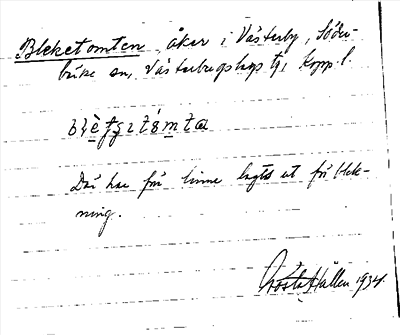 Bleketomten, åker i Västerby, Söder-
bärke sn, Västerbergslags tg, Kopp. l.
Där har för linne lagts ut för blek-
ning.
Gösta Hallen 1934.